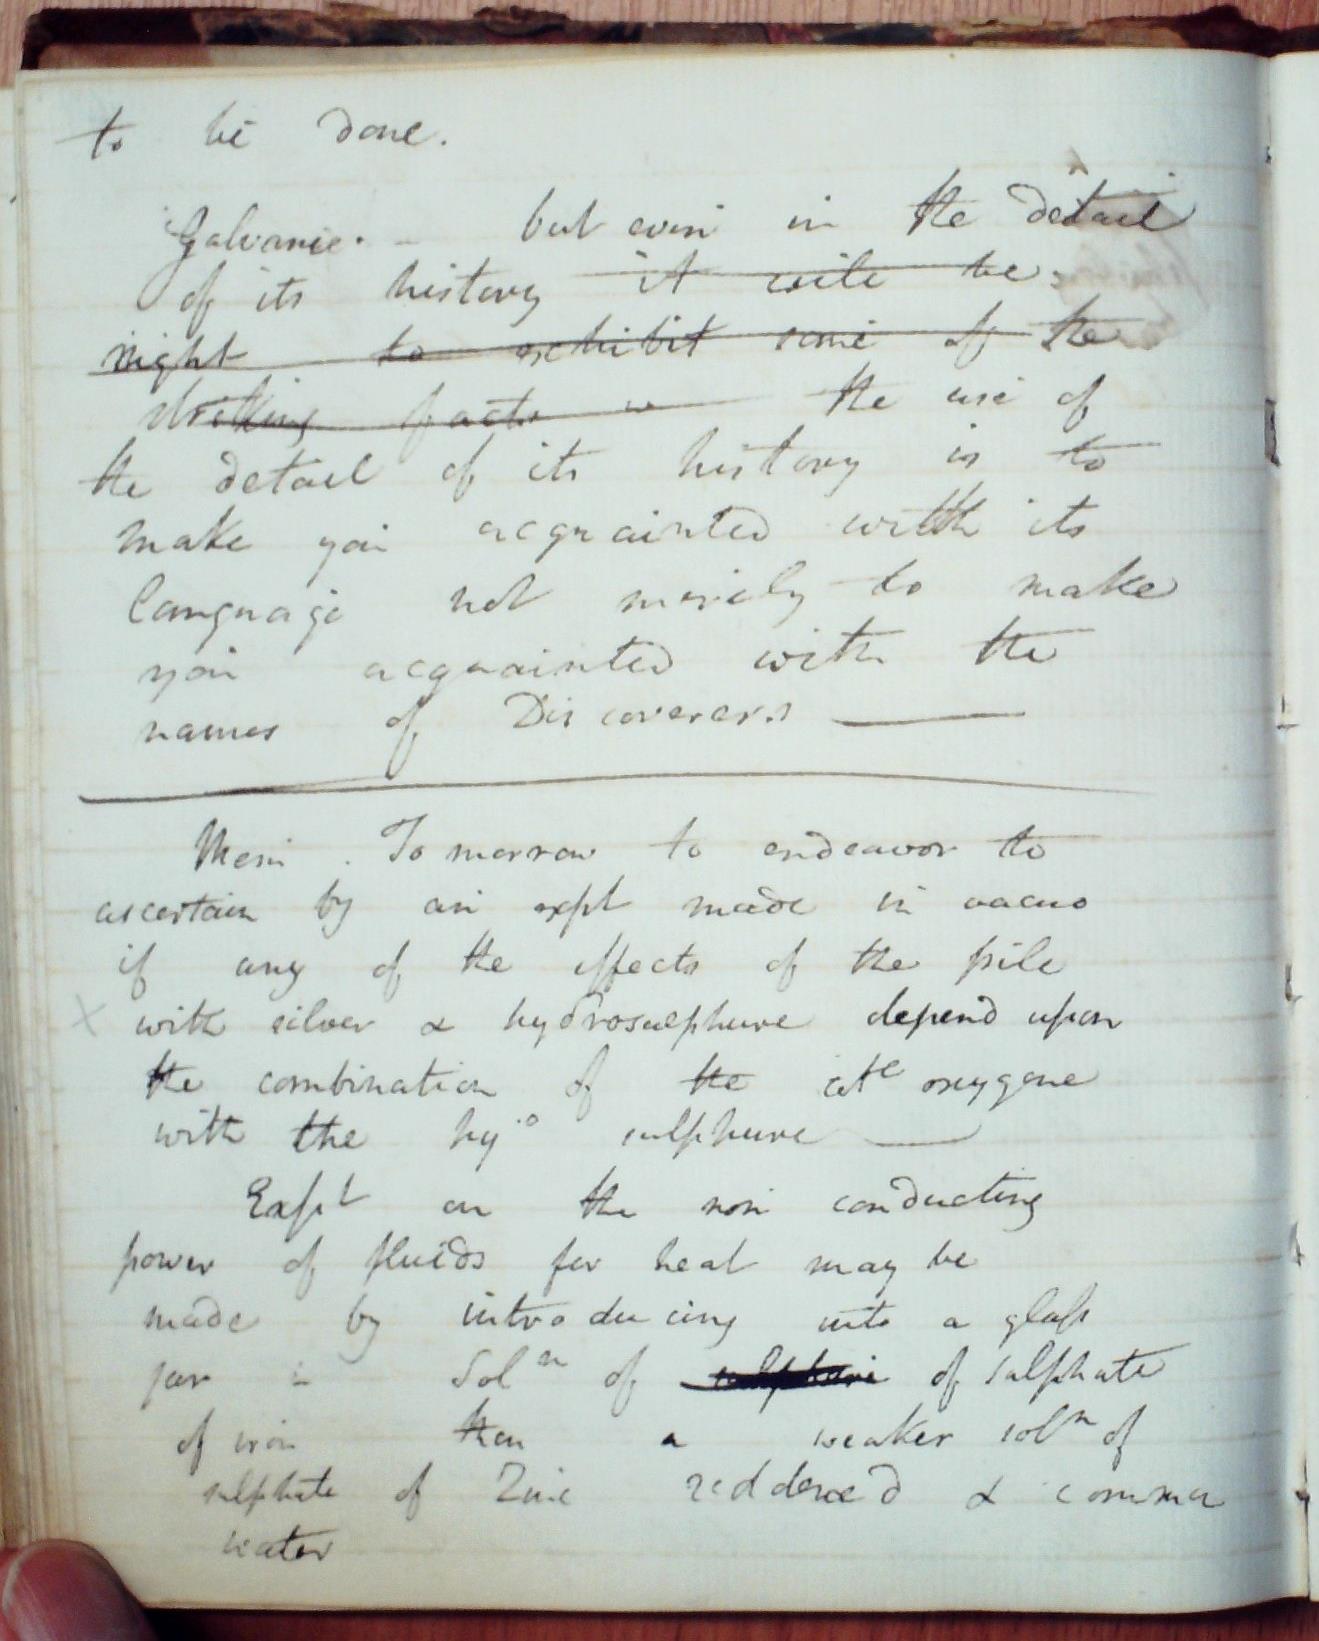 to be done.
Galvanic. - but even in the detail
of its history it will be
right to exhibit some of the
striking facts the use of
the detail of its history is to
make you acquainted with its
language not merely to make
you acquainted with the
names of Discoverers ——
Mem. To morrow to endeavor to
ascertain by an expt made in vacuo
if any of the effects of the pile
x with silver & hydrosulphure depend upon
the combination of the oxygene
with the hyo sulphure —
Expt on the non conducting
power of fluids for heat may be
made by introducing into a glass
jar a Soln of sulphure of sulphate
of iron then a weaker soln of
sulphate of Zinc reddened & common
water